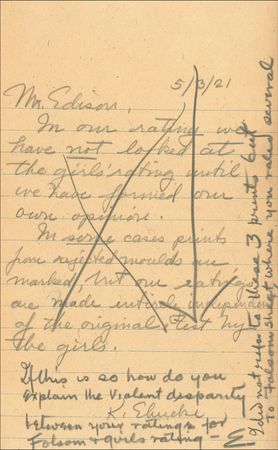 5/3/21
Mr. Edison,
In our rating we
have not looked at
the girls' rating until
we have formed our
own opinion.
In some cases prints
from rejected moulds are
marked, but our ratings
are made entirely independent
of the original test by
the girls.
K. Ehricke
If this is so how do you
explain the violent disparity
between your ratings for
Folsom & girls rating —
E
I did not refer to these 3 prints but
To Folsom sheet where you rated several